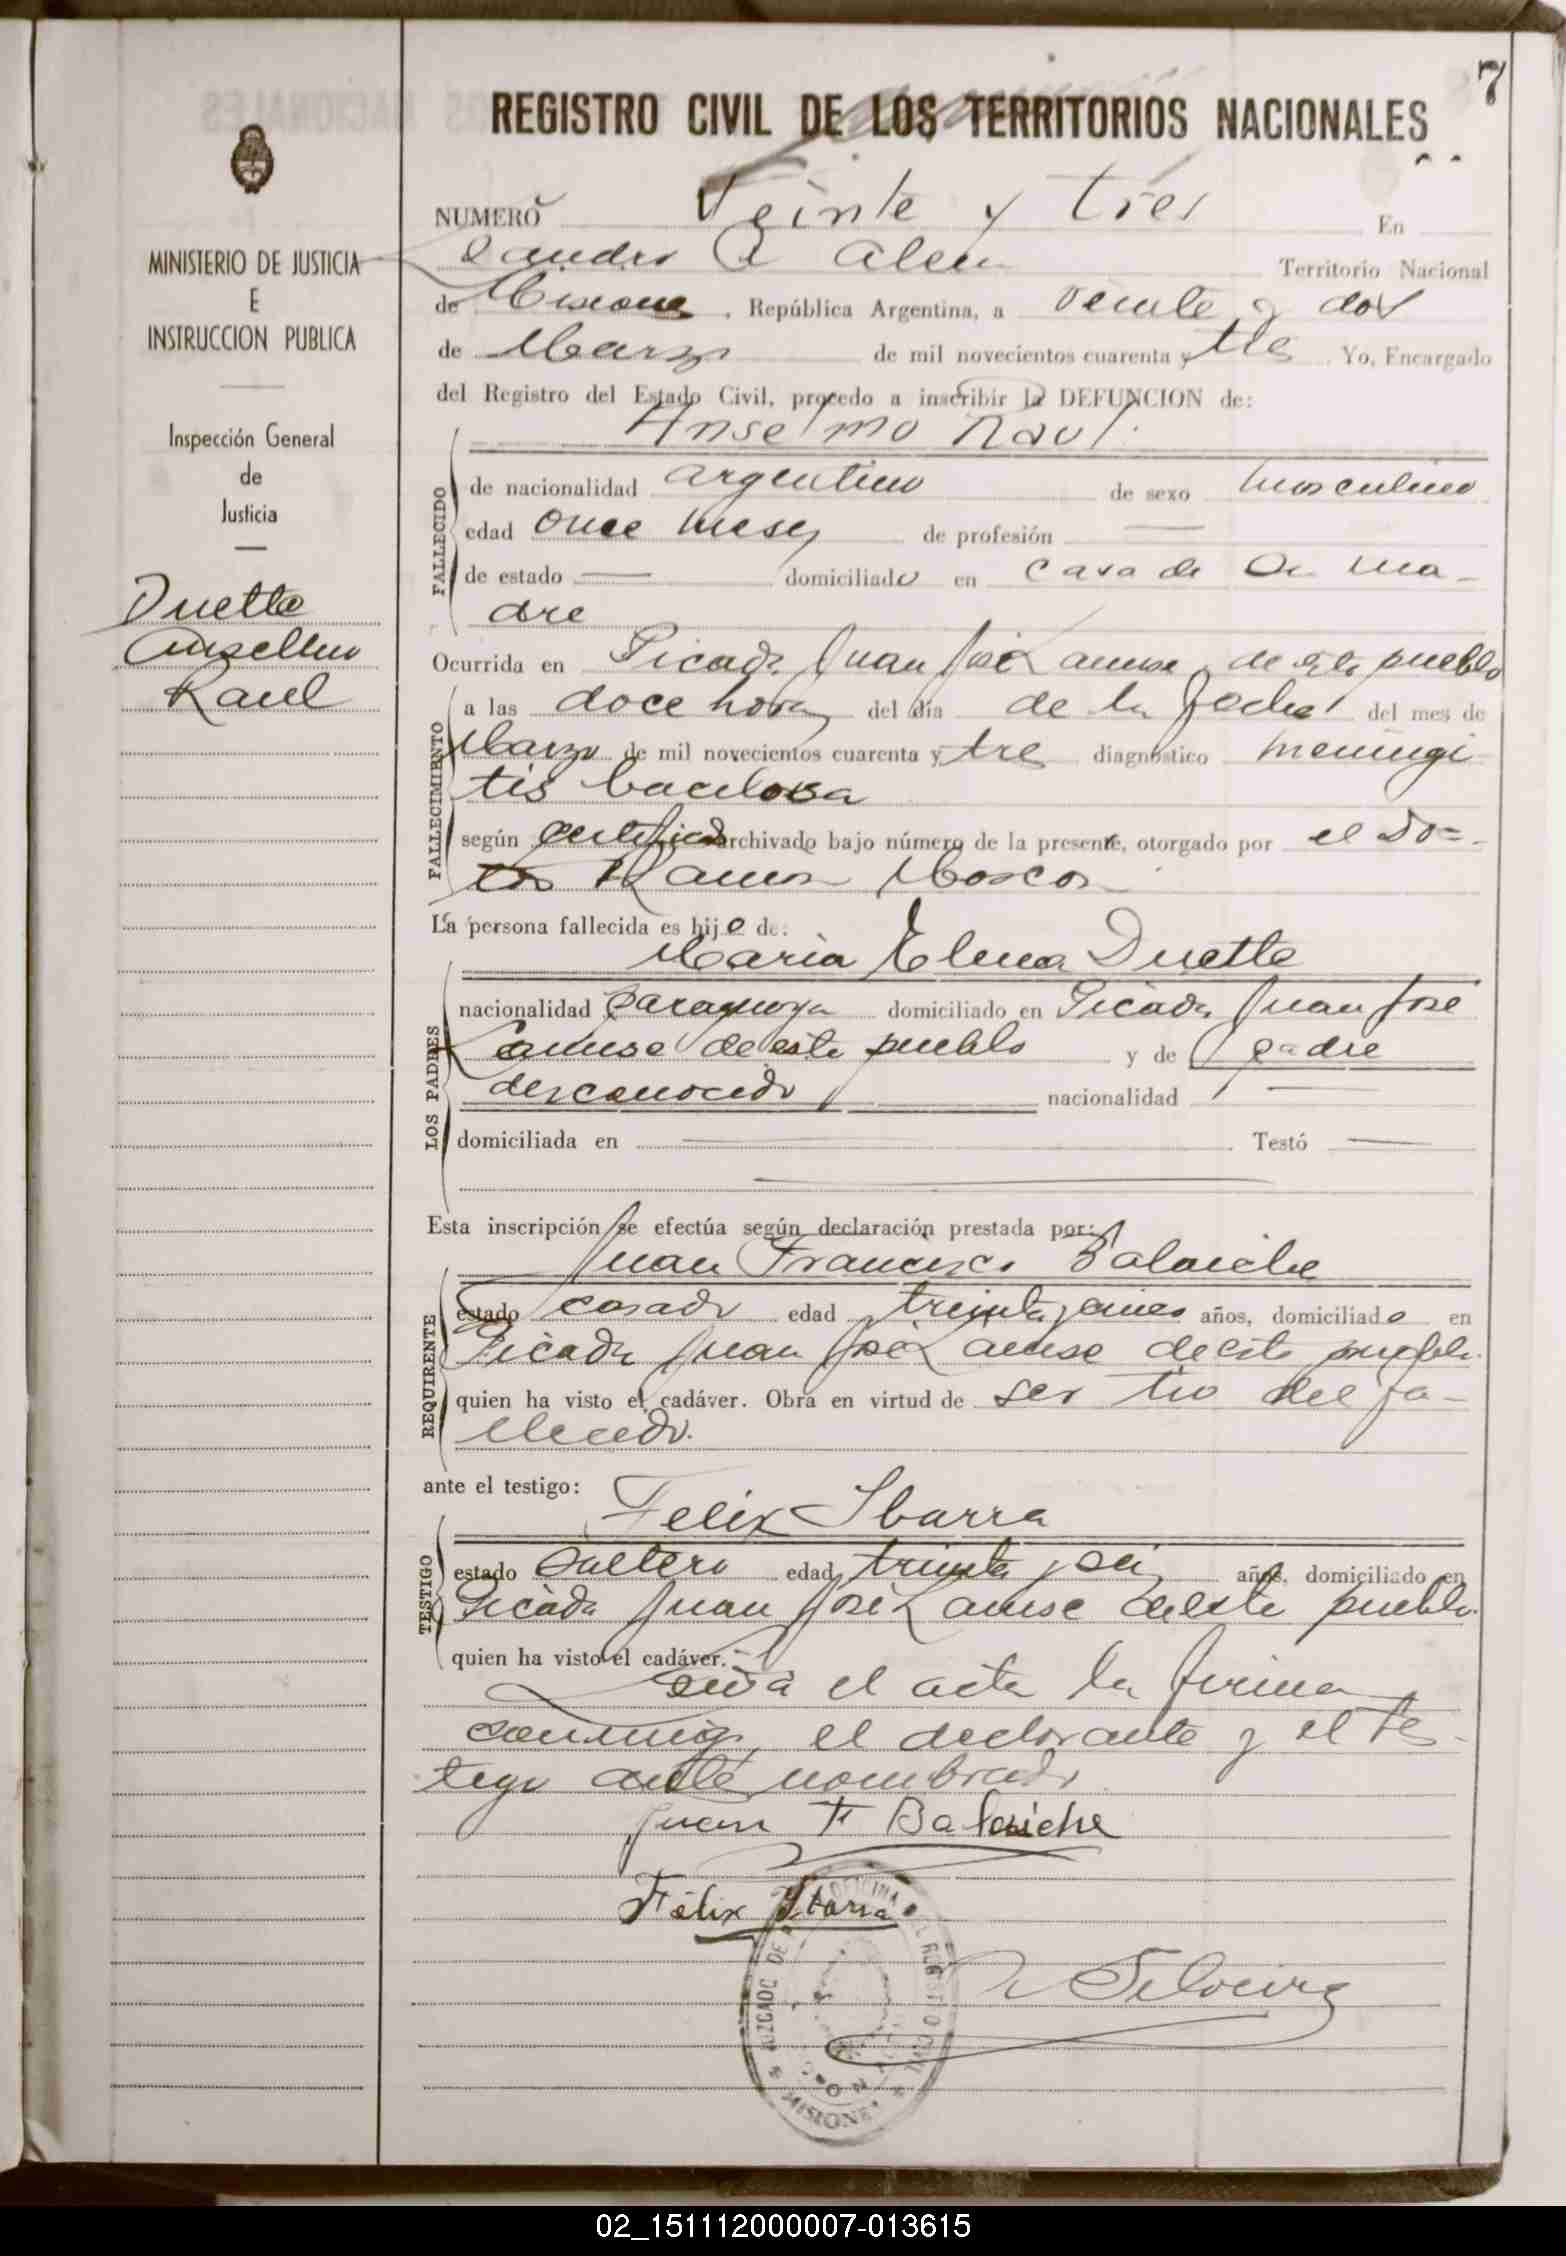 7
REGISTRO CIVIL DE LOS TERRITORIOS NACIONALES
MINISTERIO DE JUSTICIA
E
INSTRUCCION PUBLICA
Inspección General
de
Justicia
Duette
Anselmo
Raul
NUMERO Veinte y tres En
Leandro N Alem Territorio Nacional
de Misiones, República Argentina, a veinte y dos
de Marzo de mil novecientos cuarenta y tres Yo, Encargado
del Registro del Estado Civil, procedo a inscribir la DEFUNCION de:
Anselmo Raul
FALLECIDO
de nacionalidad argentino de sexo masculino
edad once meses de profesión —
de estado — domiciliado en casa de su ma-
dre
Ocurrida en Picada Juan José Lanusse de este pueblo
FALLECIMIENTO
a las doce horas del día de la fecha del mes de
Marzo de mil novecientos cuarenta y tres diagnóstico meningi
tis bacilosa
según certificado archivado bajo número de la presente, otorgado por el Do=
tor Ramon
La persona fallecida es hijo de:
Maria Elena Duette
LOS PADRES
nacionalidad paraguaya domiciliado en Picada Juan José
Lanuse de este pueblo y de padre
desconocido nacionalidad —
domiciliada en — Testó —
Esta inscripción se efectúa según declaración prestada por:
Juan Francisco Balaiche
REQUIRENTE
estado casado edad treinta y años, domiciliado en
Picada Juan José Lanuse de este pueblo
quien ha visto el cadáver. Obra en virtud de ser tio del fa-
llecido.
ante el testigo:
Felix Ibarra
TESTIGO
estado soltero edad treinta y seis años, domiciliado en
Picada Juan José Lanuse de este pueblo
quien ha visto el cadáver.
Leida el acta la firma
conmigo, el declarante y el tes-
tigo antes nombrado
Juan F Balaiche
Félix Ybarra
Silveira
JUZGADO DE PAZ OFICINA DEL REGISTRO CIVIL
MISIONES
02_151112000007-013615